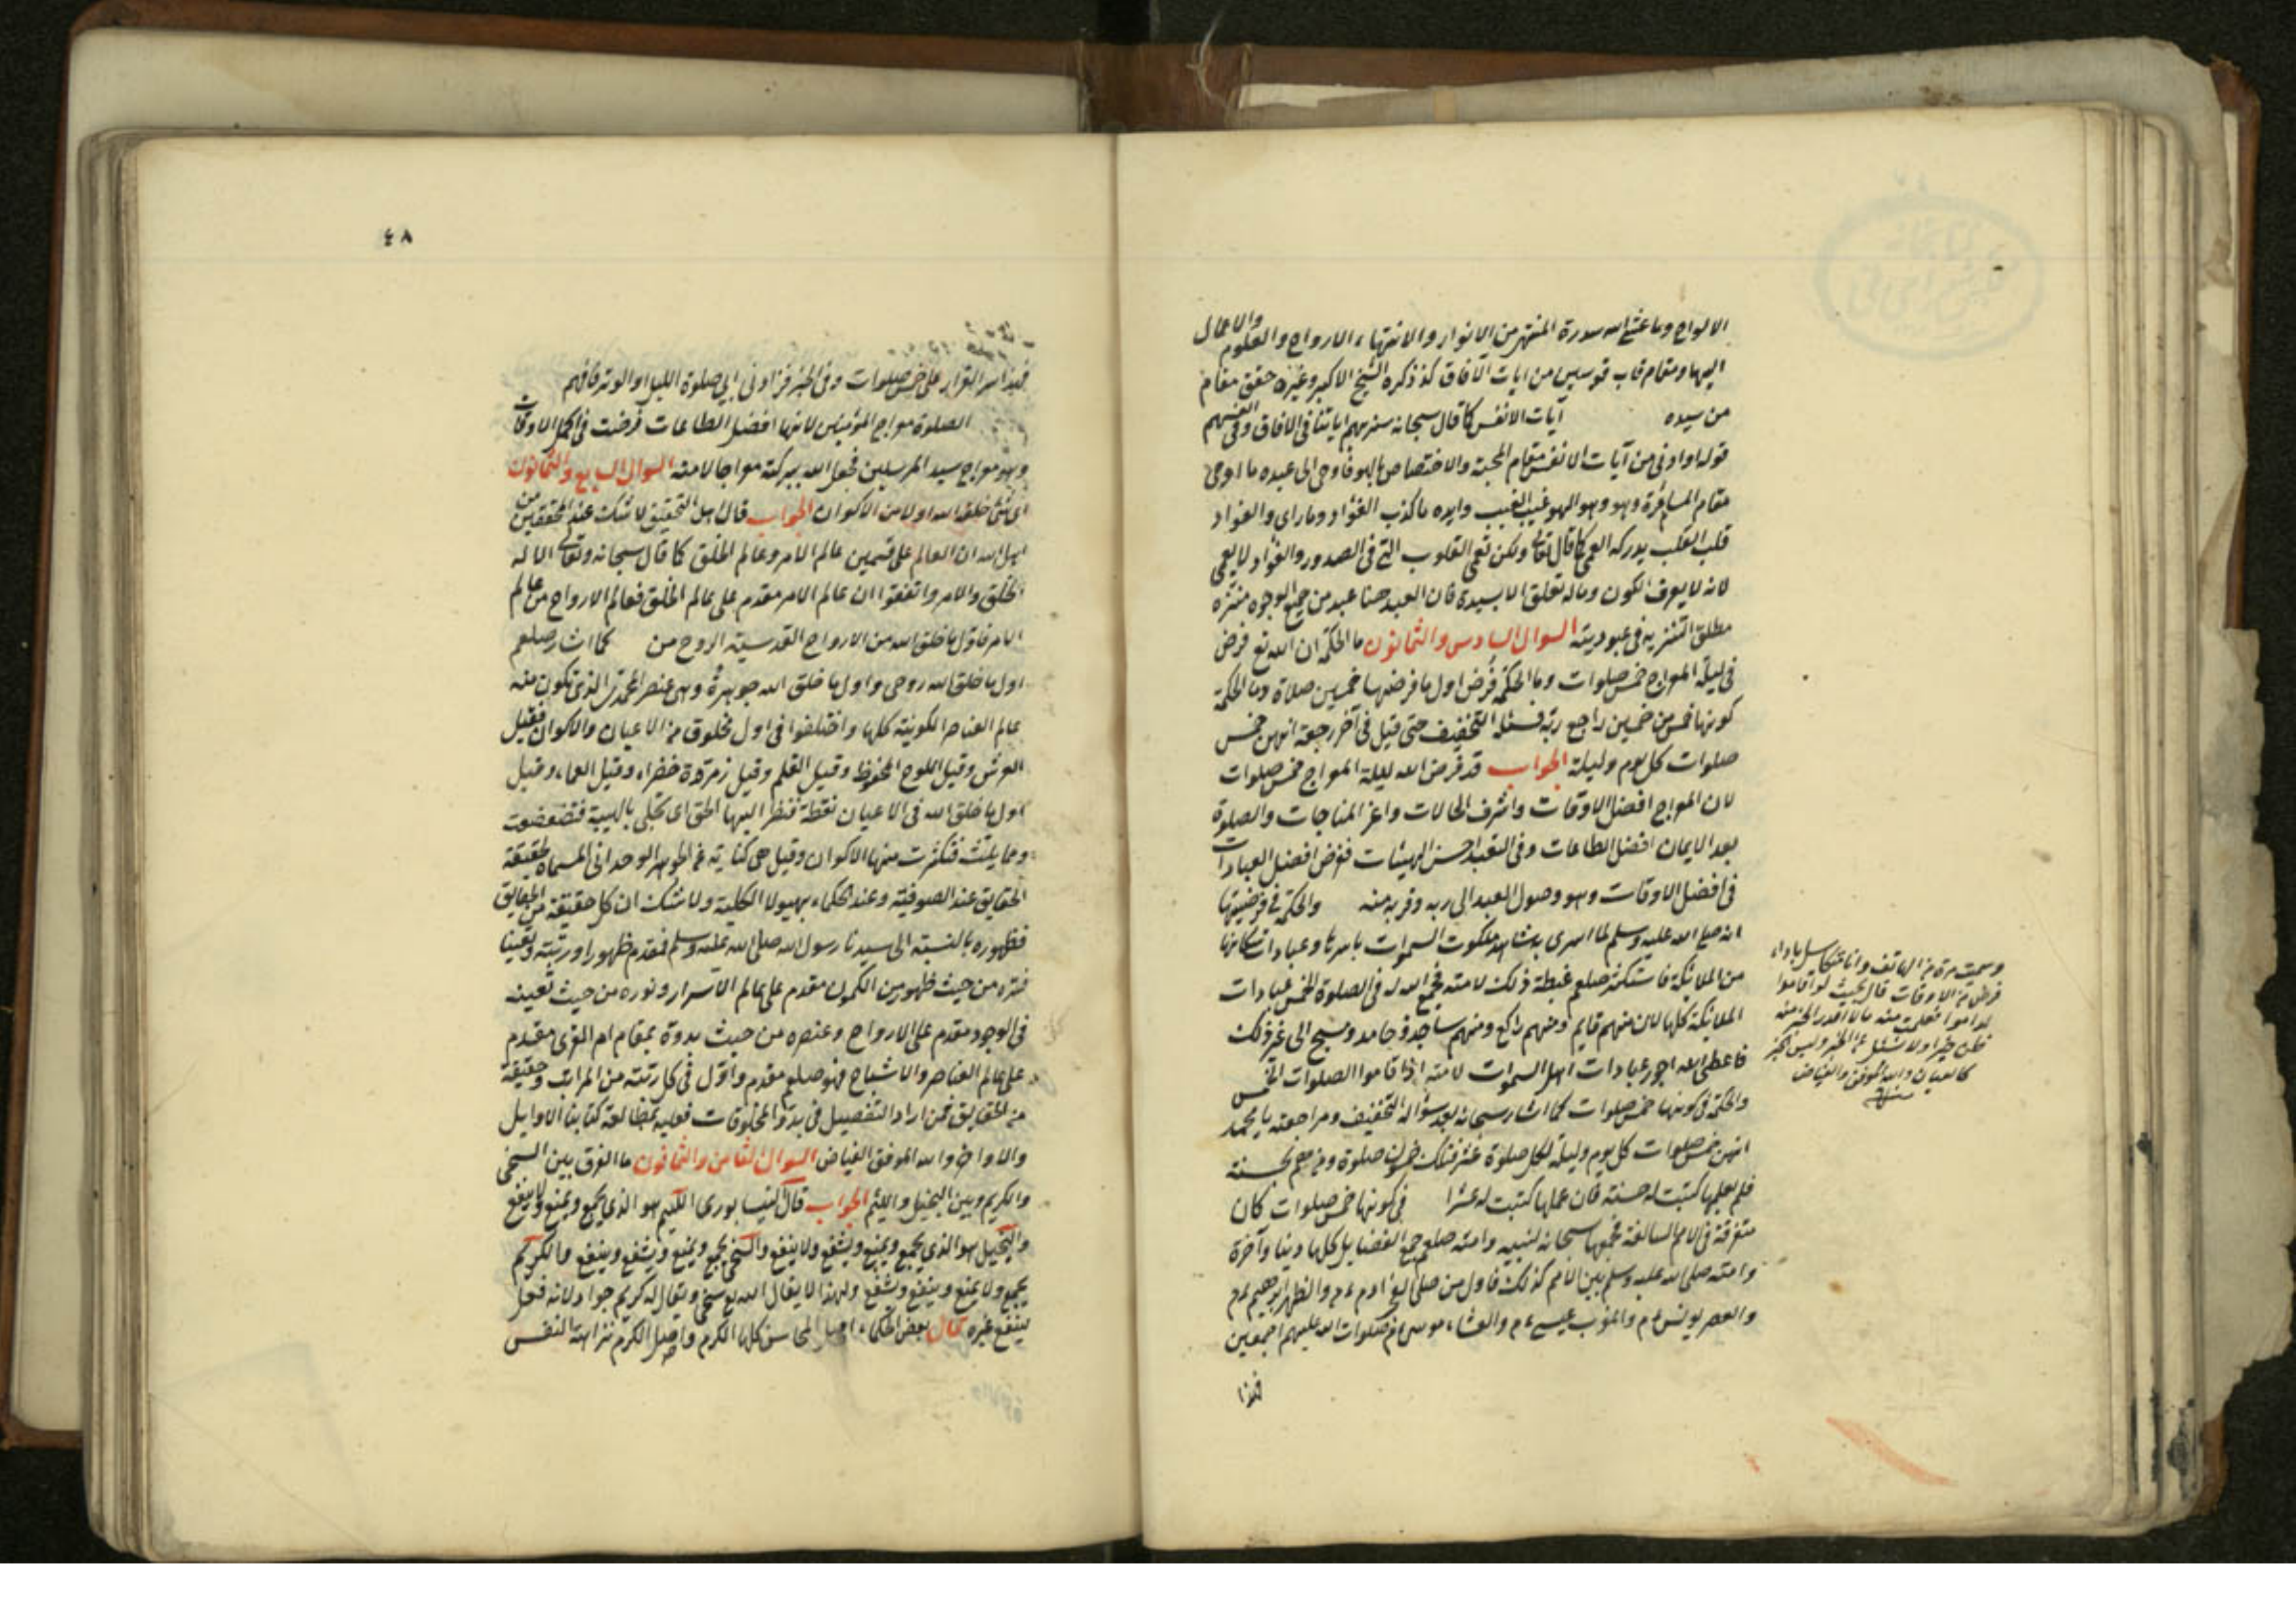 الالواح وما غشى الله سدرة المنتهى من الانوار والانتهاء الارواح والعلوم والاعمال
اليها ومقام قاب قوسين من ايات الآفاق كذ ذكره الشيخ الاكبر وغيره حقق مقام
من سيده آيات الانفس كما قال سبحانه سنريهم اياتنا فى الافاق وفى انفسهم
قوله او ادنى من آيات الانفس مقام المحبة والاختصاص بالهو فاوحى الى عبده ما اوحى
مقام المسامرة وهو وهو الهو غيب الغيب وايده ما كذب الفؤاد وما راى والفواد
قلب القلب يدركه العمى كما قال تعالى ولكن تعمى القلوب التى فى الصدور والفؤاد لا يعمى
لانه لا يعرف الكون وماله تعلق الا بسيده فان العبد هنا عبد من جميع الوجوه منزه
مطلق التنزيه فى عبوديته السوال السادس والثمانون ما الحكمة ان الله تع فرض
فى ليلة المعراج خمس صلوات وما الحكمة فرض اول ما فرضها خمسين صلاة وما الحكمة
كونها خمس من خمسين راجع ربه فسئله التخفيف حتى قيل فى آخر رجعة انهن خمس
صلوات كل يوم وليلة الجواب قد فرض الله ليلة المعراج خمس صلوات
لان المعراج افضل الاوقات واشرف الحالات واعز المناجات والصلوة
بعد الايمان افضل الطاعات وفى التعبد احسن الهيئات ففرض افضل العبادات
فى افضل الاوقات وهو وصول العبد الى ربه وقربه منه والحكمة فى فرضيتها
انه صلى الله عليه وسلم لما اسرى به شاهد ملكوت السموات باسرها وعبادات سكانها
من الملائكة فاستكثر صلعم غبطة ذلك لامته فجمع الله له فى الصلوة الخمس عبادات
الملائكة كلها لان منهم قايم ومنهم راكع ومنهم ساجد وحامد ومسبح الى غير ذلك
فاعطى الله اجور عبادات اهل السموات لامته اذا قاموا الصلوات الخمس
والحكمة فى كونها خمس صلوات كما اشار سبحانه بعد سؤاله التخفيف ومراجعته يا محمد
انهن خمس صلوات كل يوم وليلة لكل صلوة عشر فتلك خمسون صلوة ومن هم بحسنة
فلم يعملها كتبت له حسنة فان عملها كتبت له عشرا فى كونها خمس صلوات كان
متفرقة فى الامم السالفة فجمعها سبحانه لنبيه وامته صلعم جمع الفضايل كلها دينا وآخرة
وامته صلى الله عليه وسلم بين الامم كذلك فاول من صلى الفجر ادم ءم والظهر ابرهيم ءم
والعصر يونس ءم والمغرب عيسى ءم والعشاء موسى ءم صلوات الله عليهم اجمعين
فهذا
وسمعت مرة من الهاتف وانا متكاسل باداء
فرض من الاوقات قال بحيث لو اقاموا
ظن خيرا ولا تسئل عن الخبر وليس الخبر
كالعيان والله الموفق والفياض
منه
٤٨
فهذا سر القرار على خمس صلوات وفى الخبر فزادنى ربى صلوة الليل او الوتر فافهم
الصلوة معراج المؤمنين لانها افضل الطاعات فرضت فى اكمل الاوقات
وهو معراج سيد المرسلين فجعل الله ببركته معراجا لامته السوال السابع والثمانون
اى شئ خلق الله اولا من الاكوان الجواب قال اهل التحقيق لا شك عند المحققين من
اهل الله ان العالم على قسمين عالم الامر وعالم الخلق كما قال سبحانه وتعالى الا له
الخلق والامر واتفقوا ان عالم الامر مقدم على عالم الخلق فعالم الارواح من عالم
الامر فاول ما خلق الله من الارواح القدسية الروح من كما اشار صلعم
اول ما خلق الله روحى واول ما خلق الله جوهرة وهى عنصر المحمدى الذى تكون منه
عالم العناصر الكونية كلها واختلفوا فى اول مخلوق من الاعيان والاكوان فقيل
العرش وقيل اللوح المحفوظ وقيل القلم وقيل زمردة خضراء وقيل العماء وقيل
اول ما خلق الله فى الاعيان نقطة فنظر اليها الحق اى تجلى بالهيبة فتضعضعت
وتمايلت فتكثرت منها الاكوان وقيل هى كناية عن الجوهر الوحدانى المسماة حقيقة
الحقايق عند الصوفية وعند الحكماء بهيولا الكلية ولا شك ان كل حقيقة من الحقايق
فظهوره بالنسبة الى سيدنا رسول الله صلى الله عليه وسلم فمقدم ظهورا ورتبة وتعينا
فسره من حيث ظهور من الكمون مقدم على عالم الاسرار ونوره من حيث تعينه
فى الوجود مقدم على الارواح وعنصره من حيث بدوه بمقام ام القرى مقدم
على عالم العناصر والاشباح فهو صلعم مقدم واول فى كل رتبة من المراتب وحقيقة
من الحقايق فمن اراد التفصيل فى بدؤ المخلوقات فعليه بمطالعة كتابنا الاوايل
والاواخر والله الموفق الفياض السوال الثامن والثمانون ما الفرق بين السخى
والكريم وبين البخيل واللئيم الجواب قال النيسابورى اللئيم هو الذى يجمع ويمنع ولا ينفع
والبخيل هو الذى يجمع ويمنع ويشفع ولا ينفع والسخى يجمع ويمنع ويشفع وينفع والكريم
يجمع ولا يمنع وينفع ويشفع ولهذا لا يقال الله تع سخى ويقال له كريم جواد لانه فعل
ينفع غيره قال بعض الحكماء اصل المحاسن كلها الكرم واصل الكرم نزاهة النفس